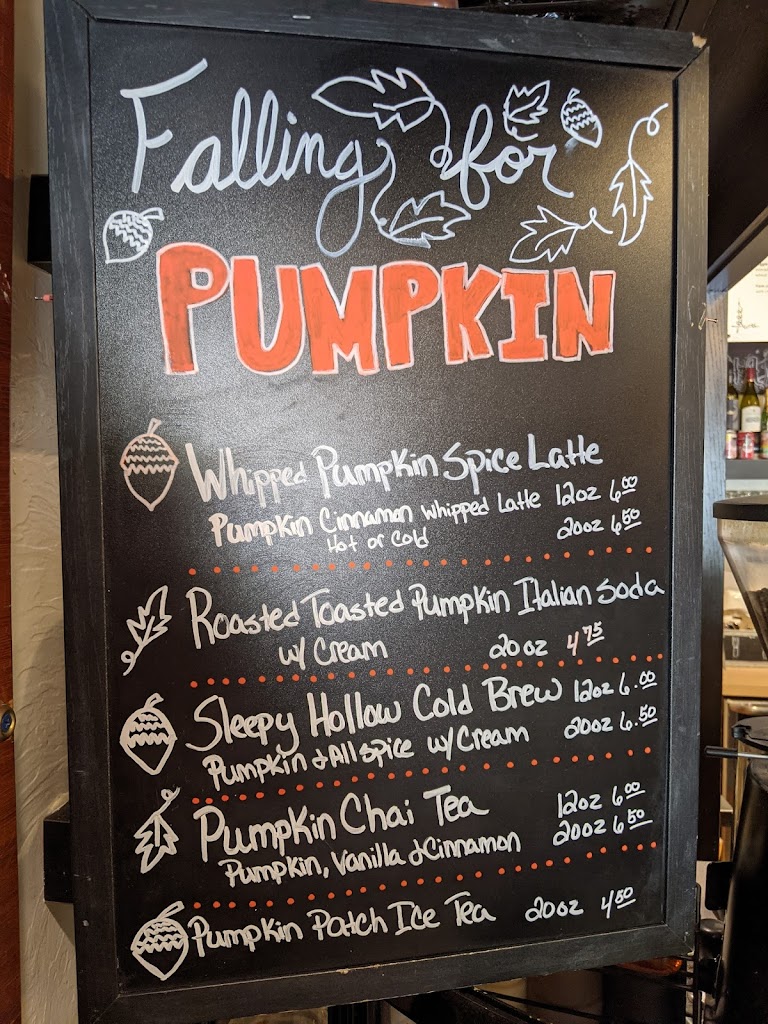 Falling for
PUMPKIN
Whipped Pumpkin Spice Latte
Pumpkin Cinnamon Whipped Latte 12oz 6.00
Hot or Cold 20oz 6.50
Roasted Toasted Pumpkin Italian Soda
w/ Cream 20oz 4.75
Sleepy Hollow Cold Brew 12oz 6.00
Pumpkin & All spice w/ Cream 20oz 6.50
Pumpkin Chai Tea 12oz 6.00
Pumpkin, Vanilla & Cinnamon 20oz 6.50
Pumpkin Patch Ice Tea 20oz 4.50